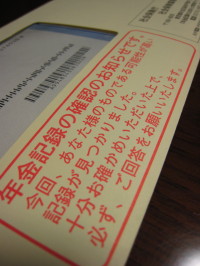 年金記録の確認のお知らせです。
今回、あなた様のものである可能性が高い
記録が見つかりました。
十分お確かめいただいた上で、
必ず、ご回答をお願いいたします。